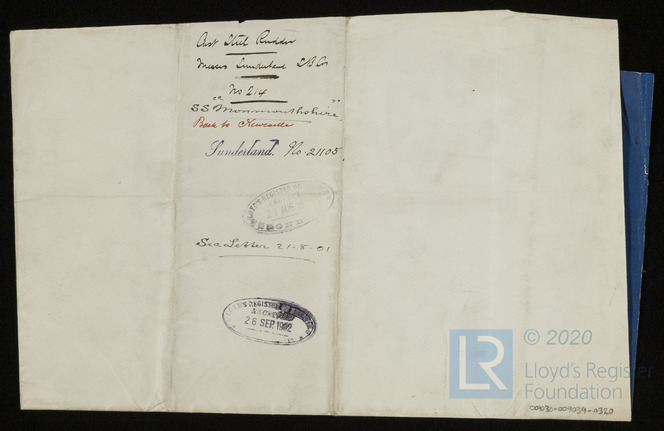 Cast Steel Rudder
Messrs Sunderland S.B. Co.
No 214
"SS Monmouthshire"
Back to Newcastle
Sunderland. No. 21105
LLOYD'S REGISTER OF
See Letter 21-8-01
LLOYD'S REGISTER
26 SEP 1902
LR
© 2020
Lloyd's Register
Foundation